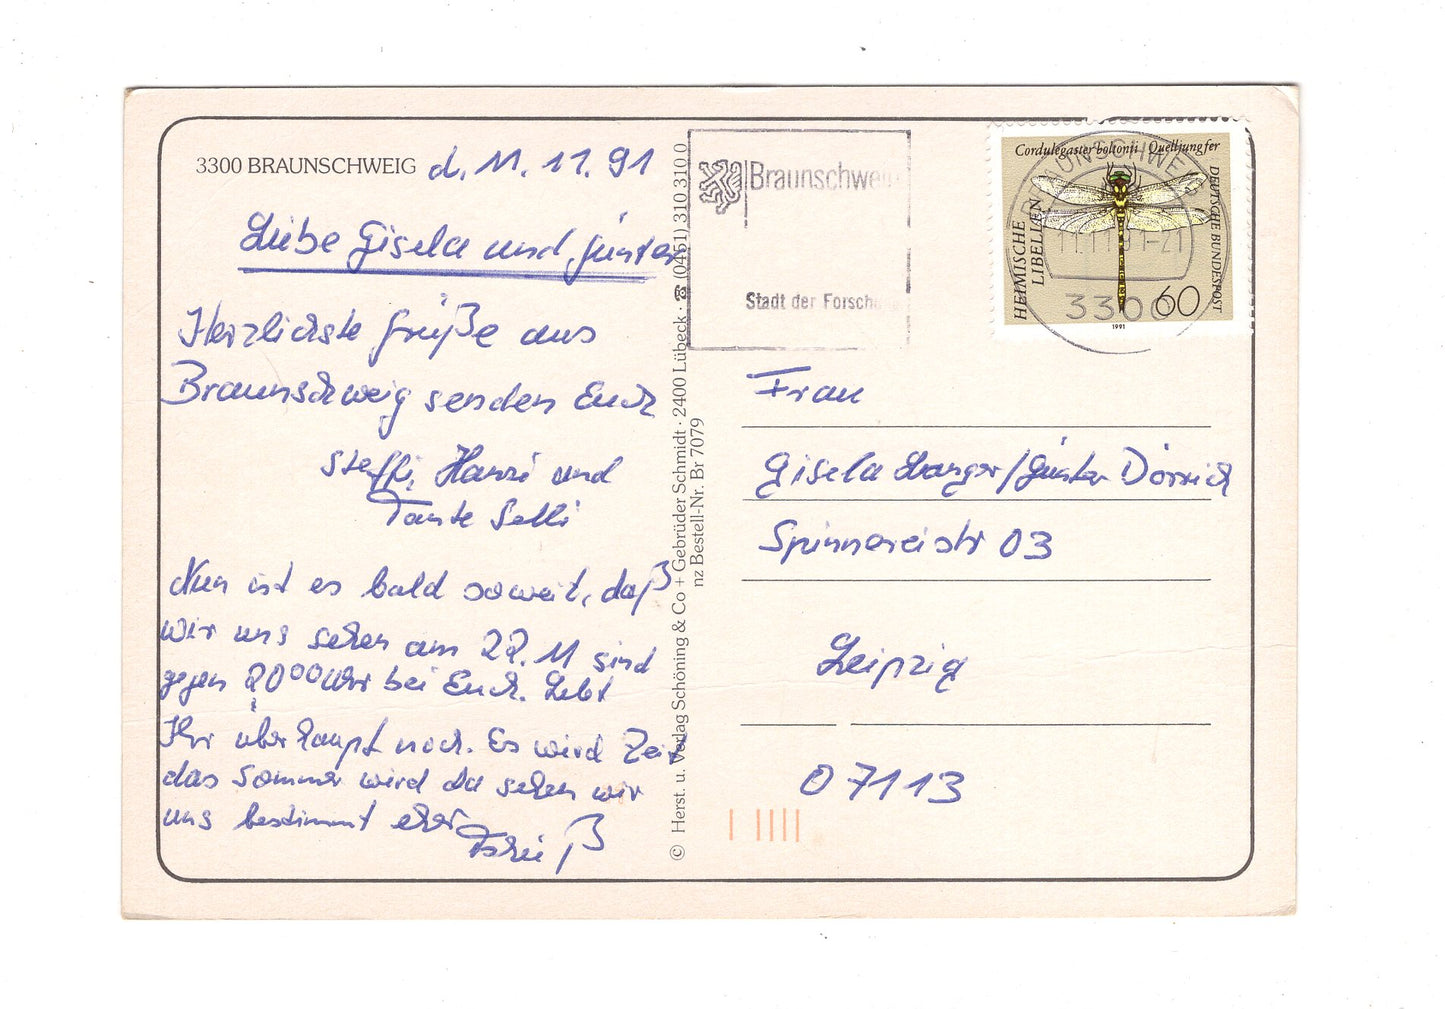 3300 BRAUNSCHWEIG d. 11. 11. 91
Liebe Gisela und Günter
Herzlichste Grüße aus
Braunschweig senden Euch
Steffi, Hansi und
Tante Selli
Nun ist es bald soweit, daß
wir uns sehen am 22. 11 sind
gegen 20 00 Uhr bei Euch. Lebt
Ihr überhaupt noch. Es wird Zeit
das Sommer wird da sehen wir
uns bestimmt eher
Tschüß
© Herst. u. Verlag Schöning & Co + Gebrüder Schmidt · 2400 Lübeck · ☎ (0451) 310 310 0
nz Bestell-Nr. Br 7079
Braunschweig
Stadt der Forschung
Cordulegaster boltonii Quelljungfer
HEIMISCHE
LIBELLEN
DEUTSCHE BUNDESPOST
60
1991
BRAUNSCHWEIG
11.11.91-21
3300
Frau
Gisela Langer/Günter Dörrich
Spinnereistr 03
Leipzig
07113